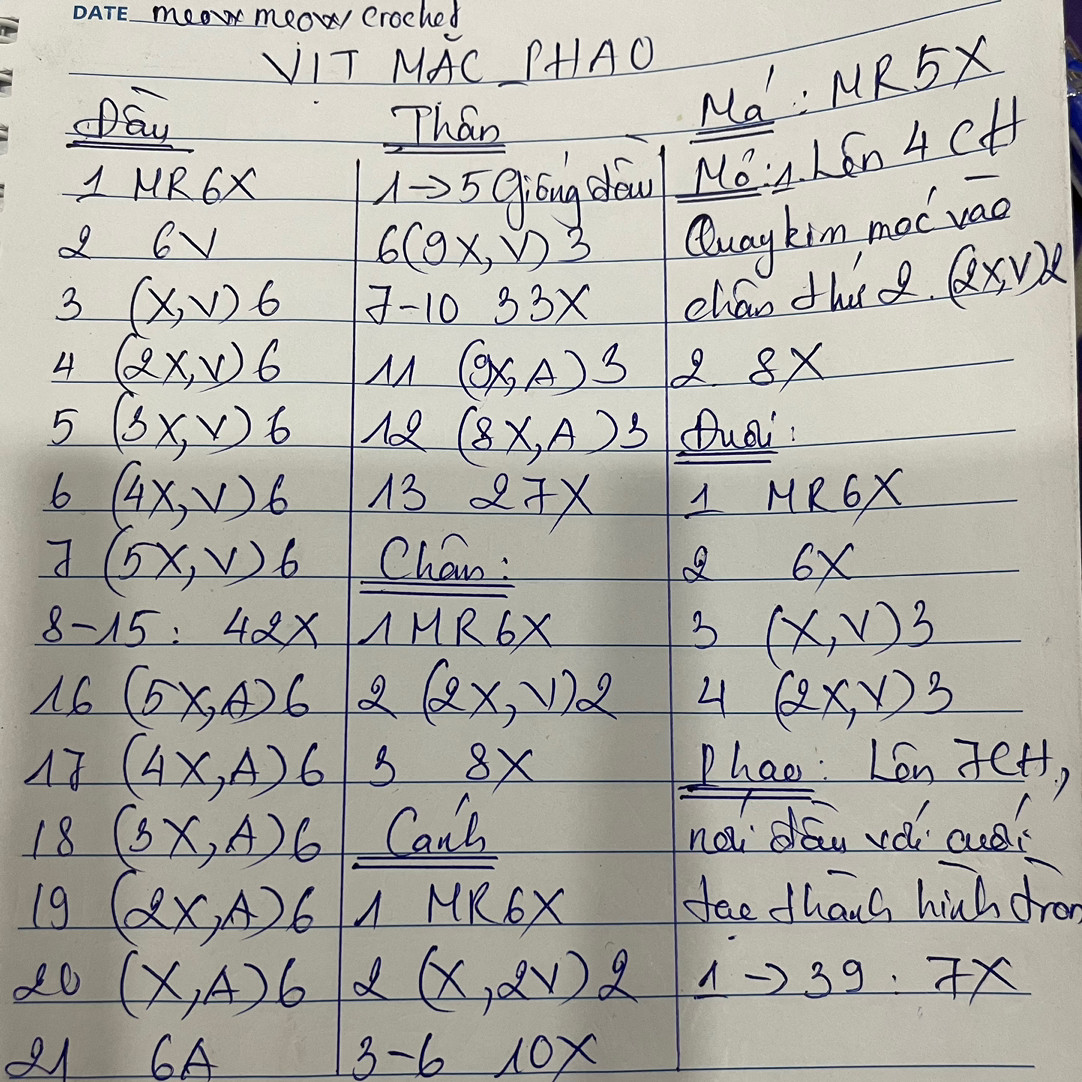 DATE meow meow Croched
VỊT MẶC PHAO
Đầu
1 MR 6X
2 6V
3 (X,V)6
4 (2X,V)6
5 (3X,V)6
6 (4X,V)6
7 (5X,V)6
8-15: 42X
16 (5X,A)6
17 (4X,A)6
18 (3X,A)6
19 (2X,A)6
20 (X,A)6
21 6A
Thân
1→5 Giống đầu
6(9X,V)3
7-10 33X
11 (9X,A)3
12 (8X,A)3
13 27X
Chân:
1 MR 6X
2 (2X,V)2
3 8X
Cánh
1 MR 6X
2 (X,2V)2
3-6 10X
Má: MR5X
Mỏ: 1. Lên 4 CH
Quay kim móc vào
chân thứ 2. (2X,V)2
2 8X
Đuôi:
1 MR 6X
2 6X
3 (X,V)3
4 (2X,V)3
Phao: Lên 7CH,
nối đầu với cuối
tạo thành hình tròn
1→39: 7X